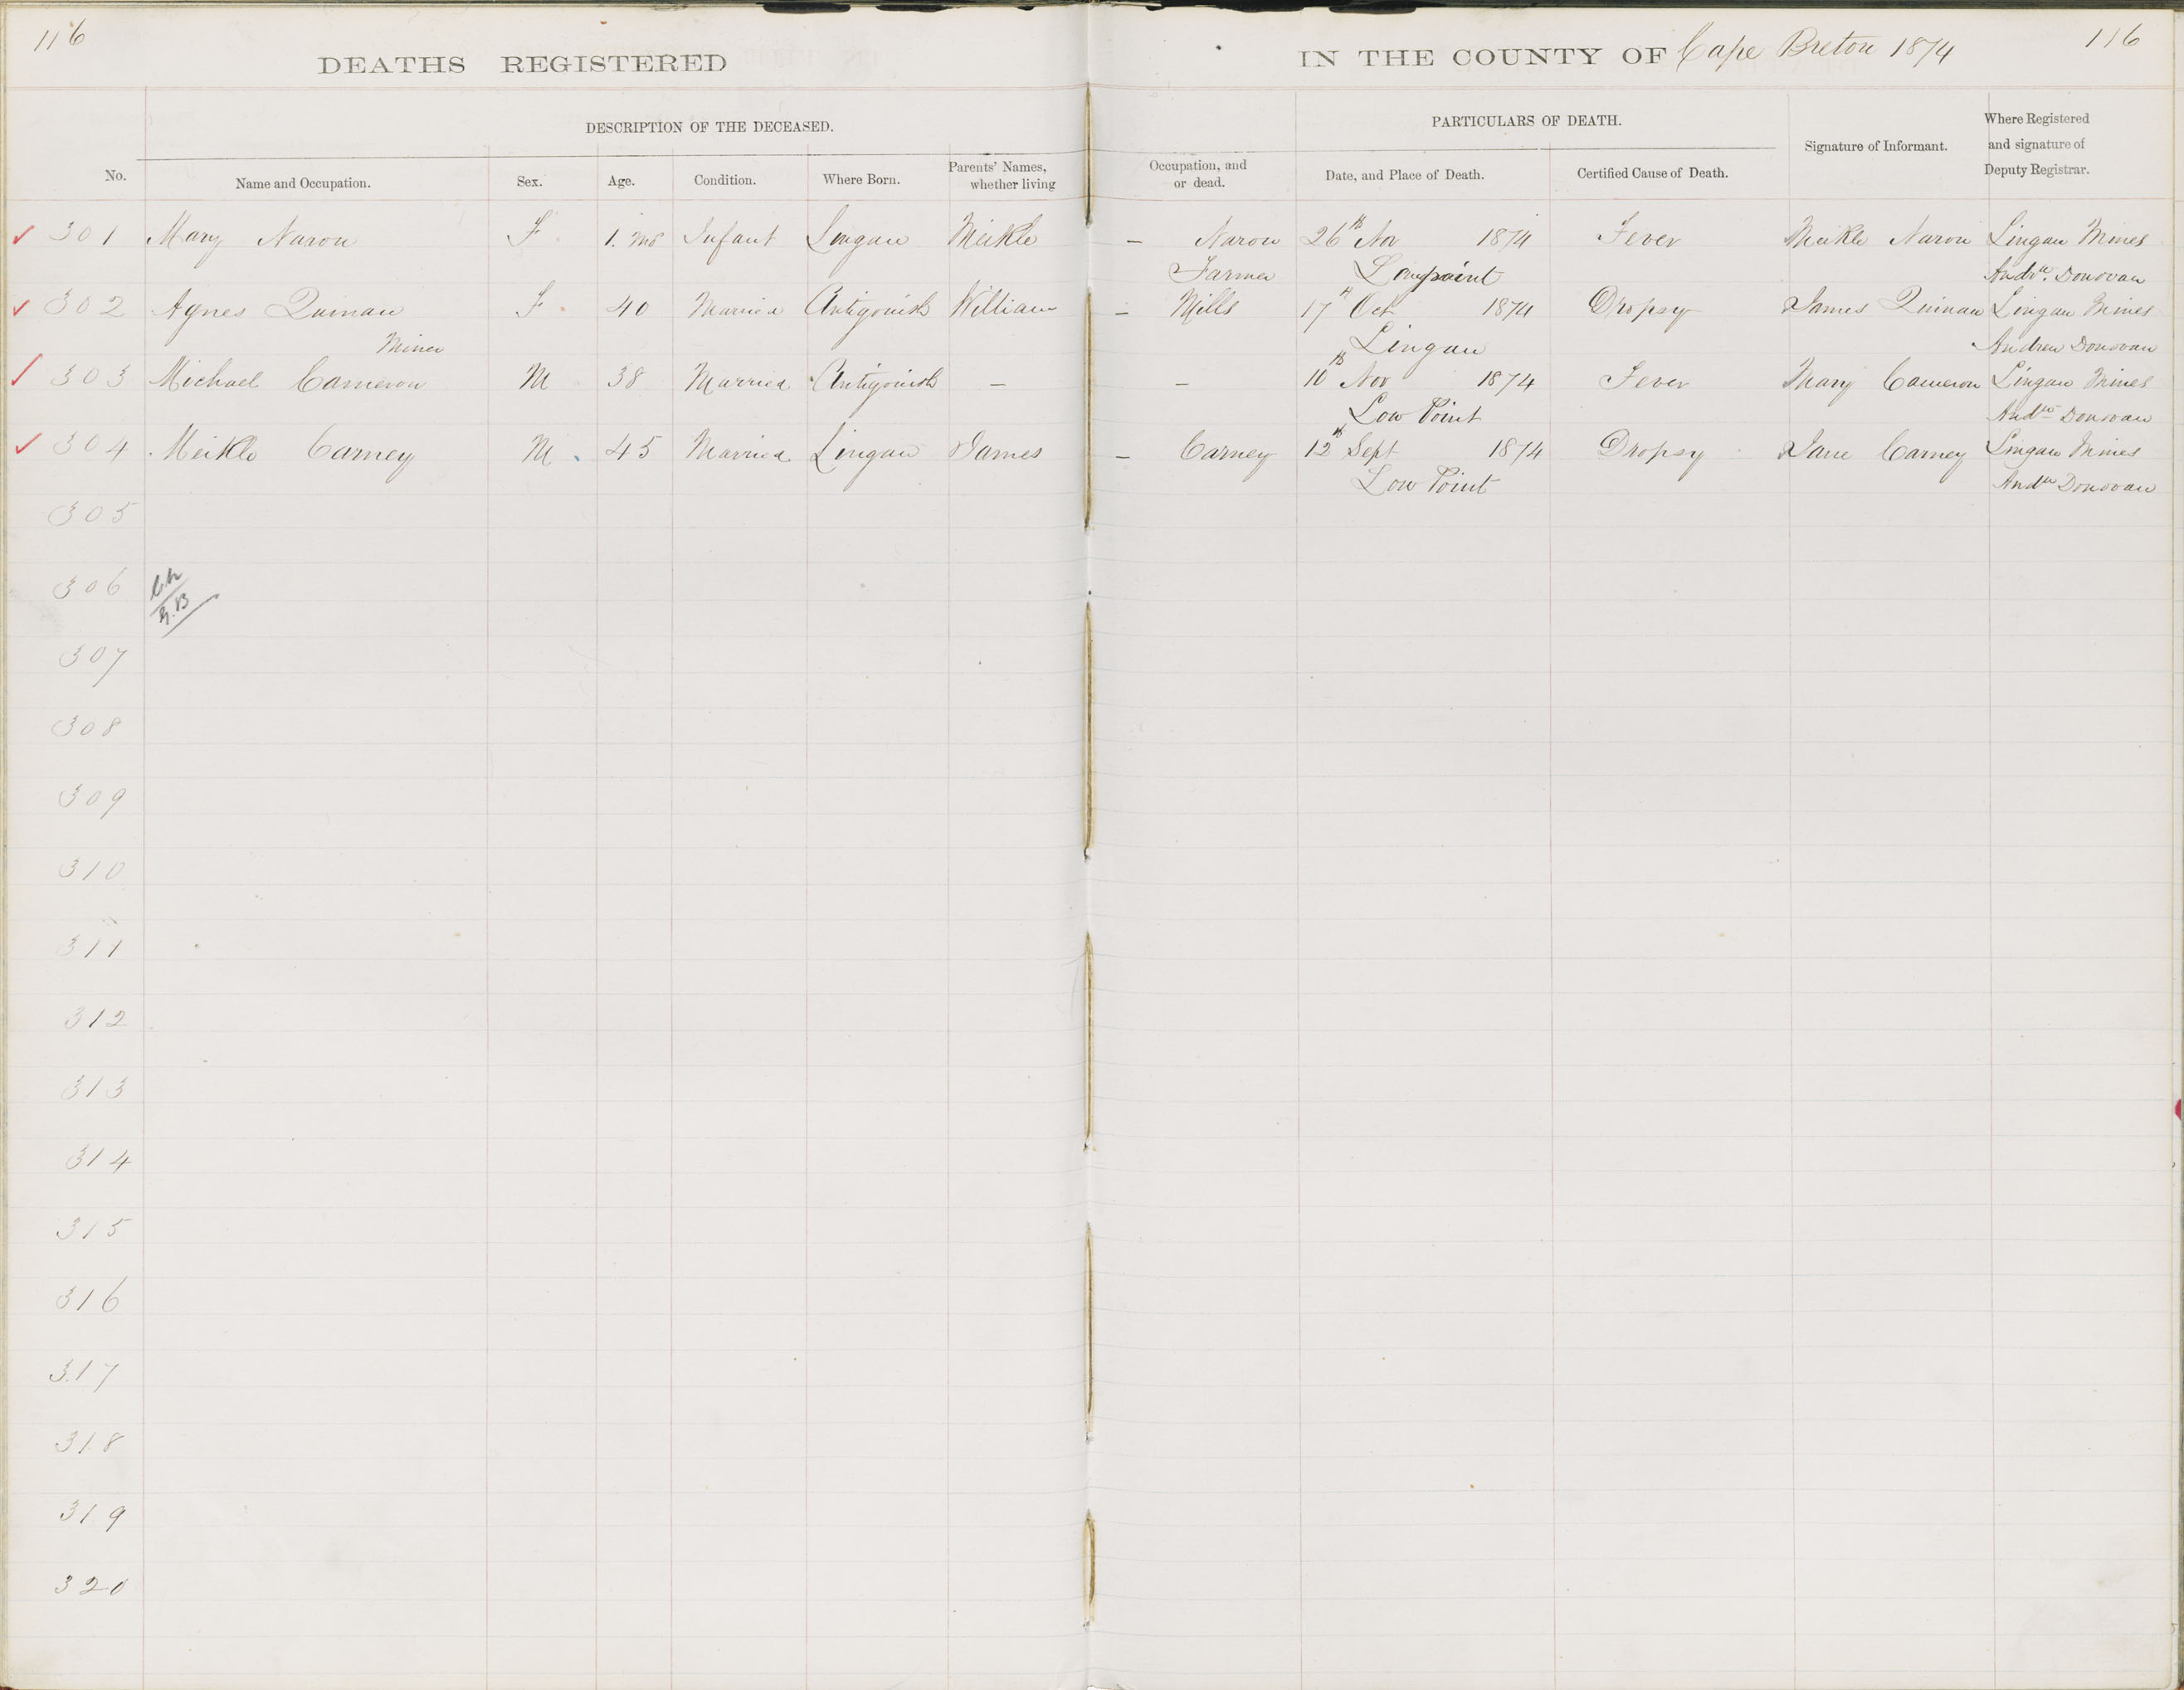 116
DEATHS REGISTERED
IN THE COUNTY OF Cape Breton 1874
116
DESCRIPTION OF THE DECEASED.
PARTICULARS OF DEATH.
Signature of Informant.
Where Registered
and signature of
Deputy Registrar.
No.
Name and Occupation.
Sex.
Age.
Condition.
Where Born.
Parents' Names,
whether living
Occupation, and
or dead.
Date, and Place of Death.
Certified Cause of Death.
301 Mary Naron F 1. mo Infant Lingan Meikle – Naron 26th Nov 1874 Fever Meikle Naron Lingan Mines
Farmer Lowpoint Andw. Donovan
302 Agnes Quinan F 40 Married Antigonish William – Mills 17th Oct 1874 Dropsy James Quinan Lingan Mines
Miner Lingan Andrew Donovan
303 Michael Cameron M 38 Married Antigonish – – 10th Nov 1874 Fever Mary Cameron Lingan Mines
Low Point Andw Donovan
304 Meikle Carney M 45 Married Lingan James – Carney 12th Sept 1874 Dropsy Jane Carney Lingan Mines
Low Point Andw Donovan
305
306
307
308
309
310
311
312
313
314
315
316
317
318
319
320